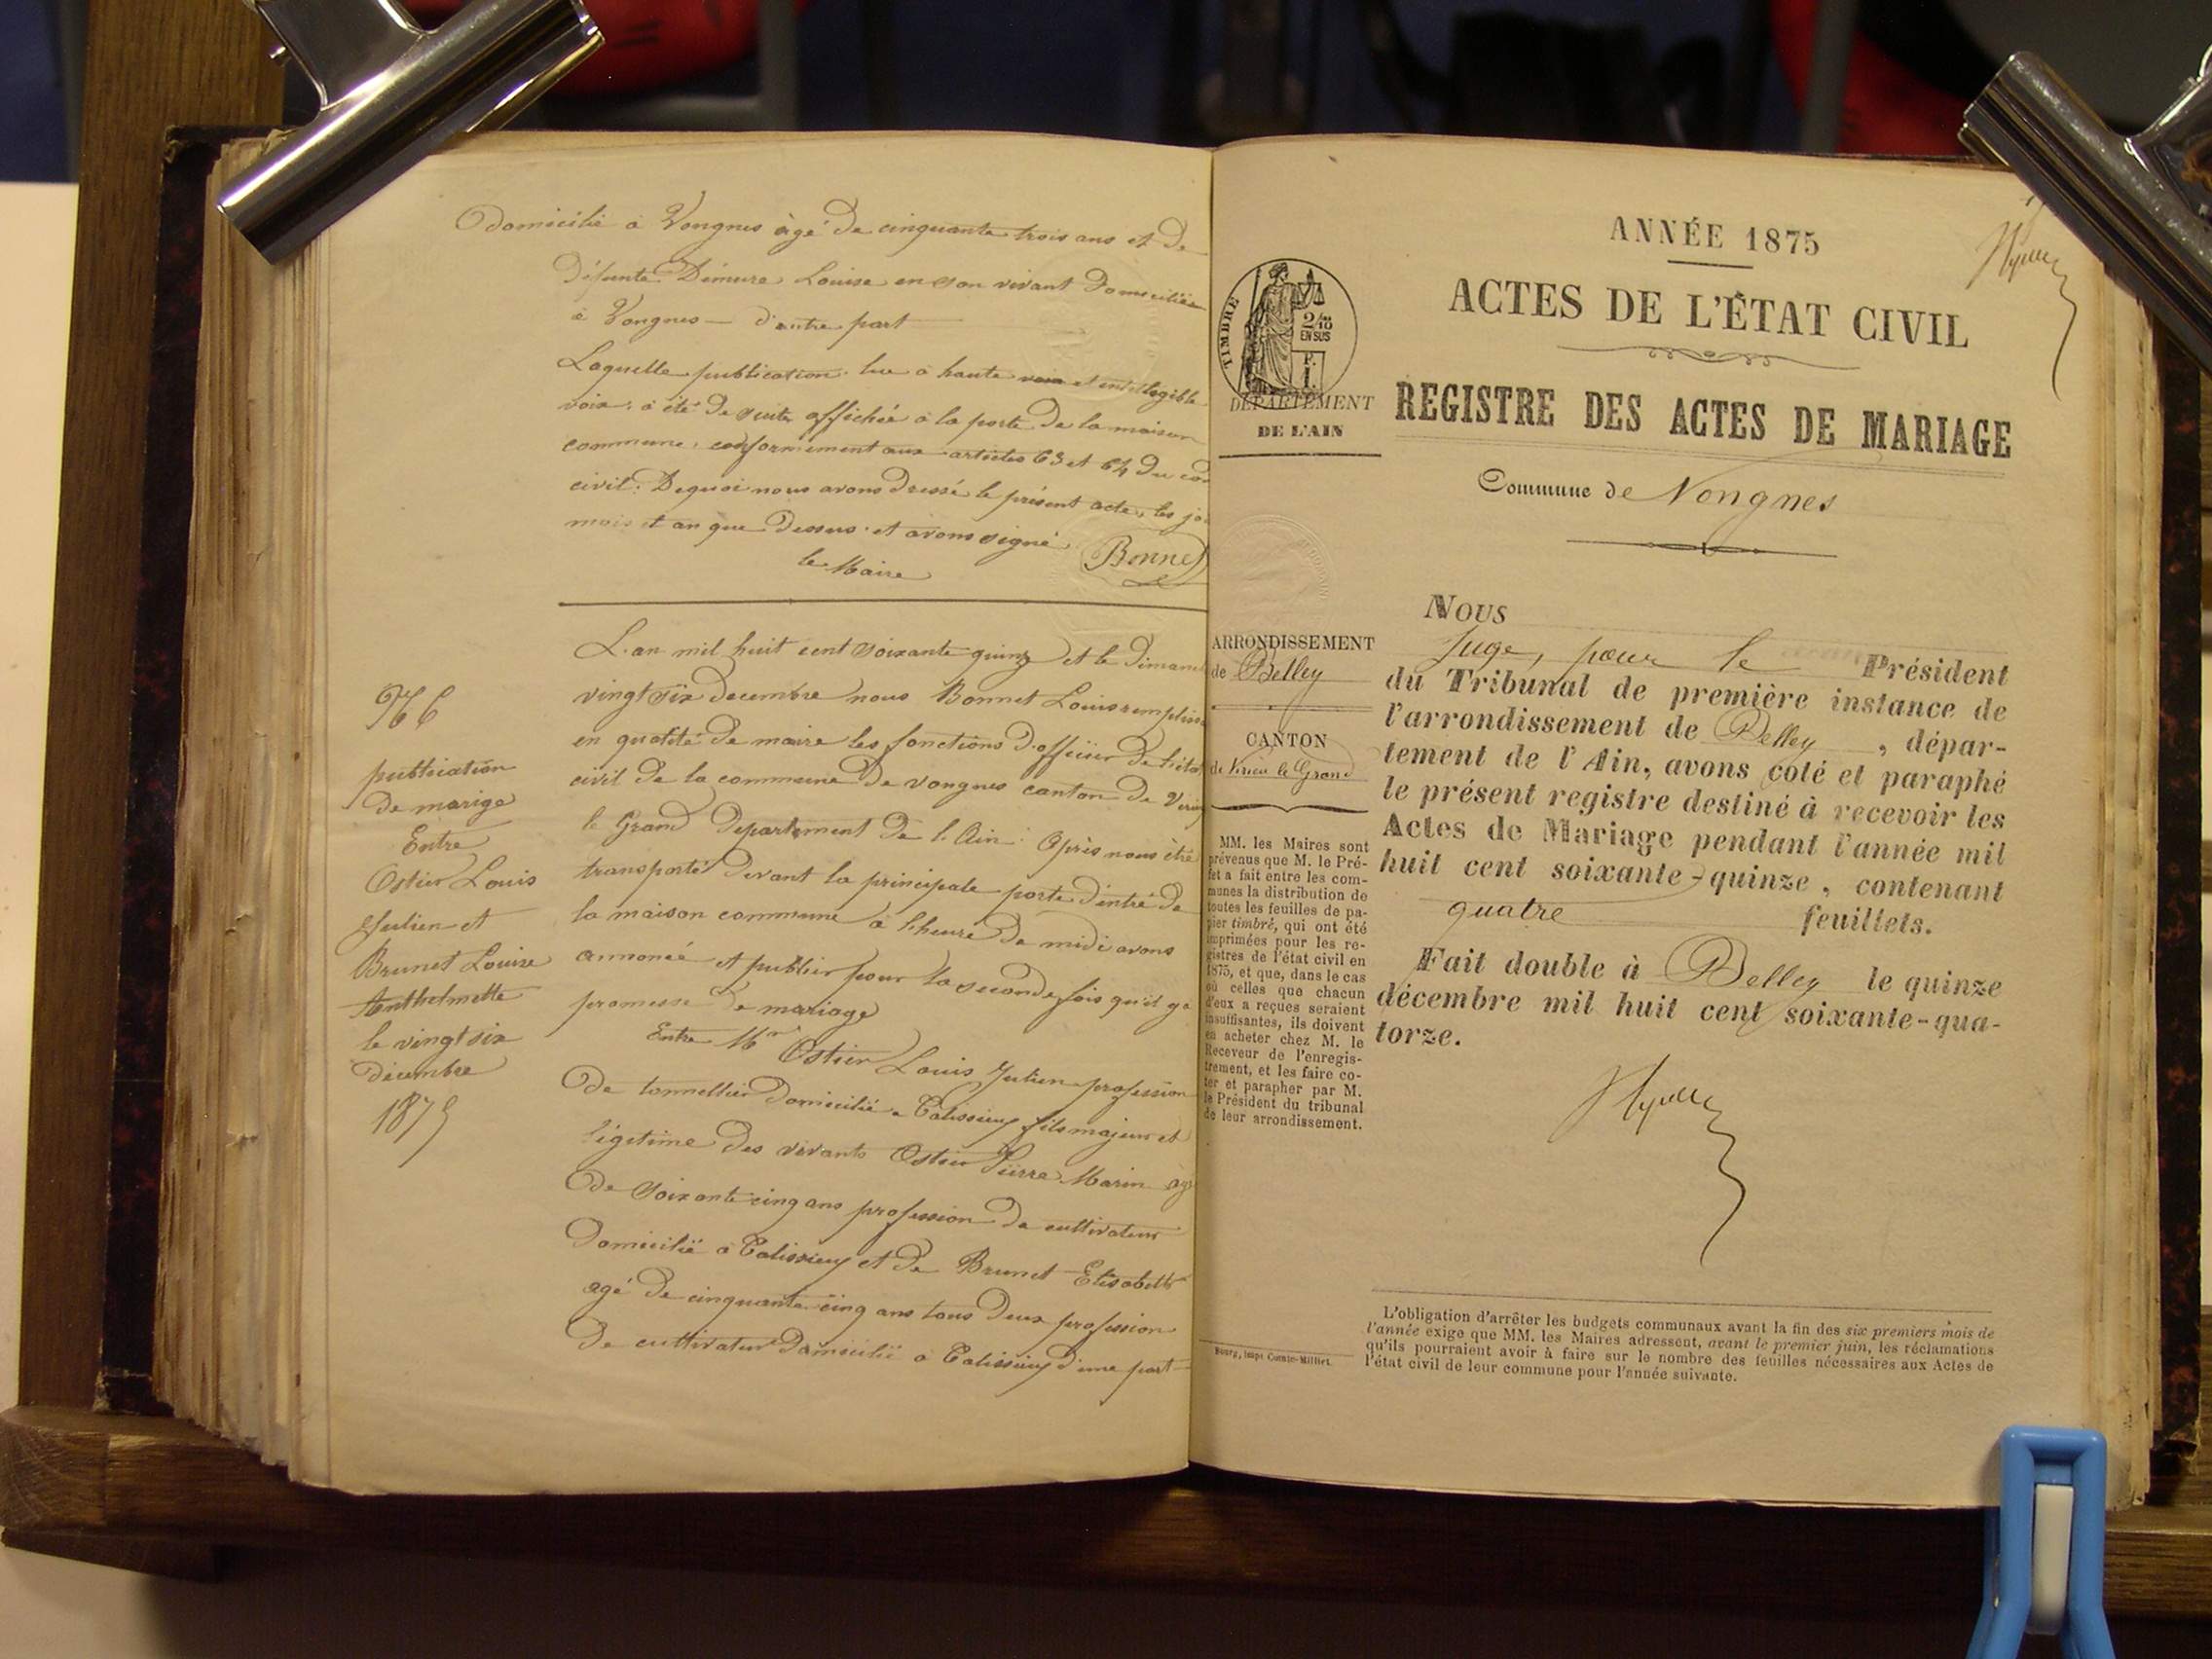 Domicilié à Vongnes âgé de cinquante trois ans et de
Défunte Dimure Louise en son vivant Domiciliée
à Vongnes — d'autre part
Laquelle publication lue a haute voix et intelligible
voix a été de suite affichée à la porte de la maison
commune, conformément aux articles 63 et 64 du cod
civil. Dequoi nous avons dressé le présent acte, les jo
mois et an que Dessus et avons signé
le Maire
Bonnet
L'an mil huit cent soixante quinze et le Diman
vingt six decembre nous Bonnet Louis rempliss
en qualité de maire les fonctions d'officier de l'éta
civil de la commune de Vongnes canton de Virieu
le Grand Departement de l'Ain. Après nous être
transporté devant la principale porte d'entré de
la maison commune à l'heure de midi avons
annoncé et publier pour la seconde fois qu'il y a
promesse de mariage
Entre Mr Ostier Louis Julien profession
de tonnellier Domicilié a Talissieu fils majeur et
légitime des vivants Ostier Pierre Marin ag
de soixante cinq ans profession de cultivateur
Domicilié à Talissieu et de Brunet Elisabeth
agé de cinquante cinq ans tous Deux profession
De cultivateur Domicilié à Talissieu d'une part
№ 6
publication
de marige
Entre
Ostier Louis
Julien et
Brunet Louise
Anthelmette
le vingt six
Décembre
1875
ANNÉE 1875
ACTES DE L'ÉTAT CIVIL
REGISTRE DES ACTES DE MARIAGE
Commune de Vongnes
TIMBRE
2/10
EN SUS
DÉPARTEMENT
DE L'AIN
ARRONDISSEMENT
de Belley
CANTON
de Virieu le Grand
MM. les Maires sont
prévenus que M. le Pré-
fet a fait entre les com-
munes la distribution de
toutes les feuilles de pa-
pier timbré, qui ont été
imprimées pour les re-
gistres de l'état civil en
1875, et que, dans le cas
où celles que chacun
d'eux a reçues seraient
insuffisantes, ils doivent
en acheter chez M. le
Receveur de l'enregis-
trement, et les faire co-
ter et parapher par M.
le Président du tribunal
de leur arrondissement.
Bourg, imp. Comte-Milliet
Nous
Juge, pour le Président
du Tribunal de première instance de
l'arrondissement de Belley , dépar-
tement de l'Ain, avons coté et paraphé
le présent registre destiné à recevoir les
Actes de Mariage pendant l'année mil
huit cent soixante-quinze, contenant
quatre feuillets.
Fait double à Belley le quinze
décembre mil huit cent soixante-qua-
torze.
L'obligation d'arrêter les budgets communaux avant la fin des six premiers mois de
l'année exige que MM. les Maires adressent, avant le premier juin, les réclamations
qu'ils pourraient avoir à faire sur le nombre des feuilles nécessaires aux Actes de
l'état civil de leur commune pour l'année suivante.